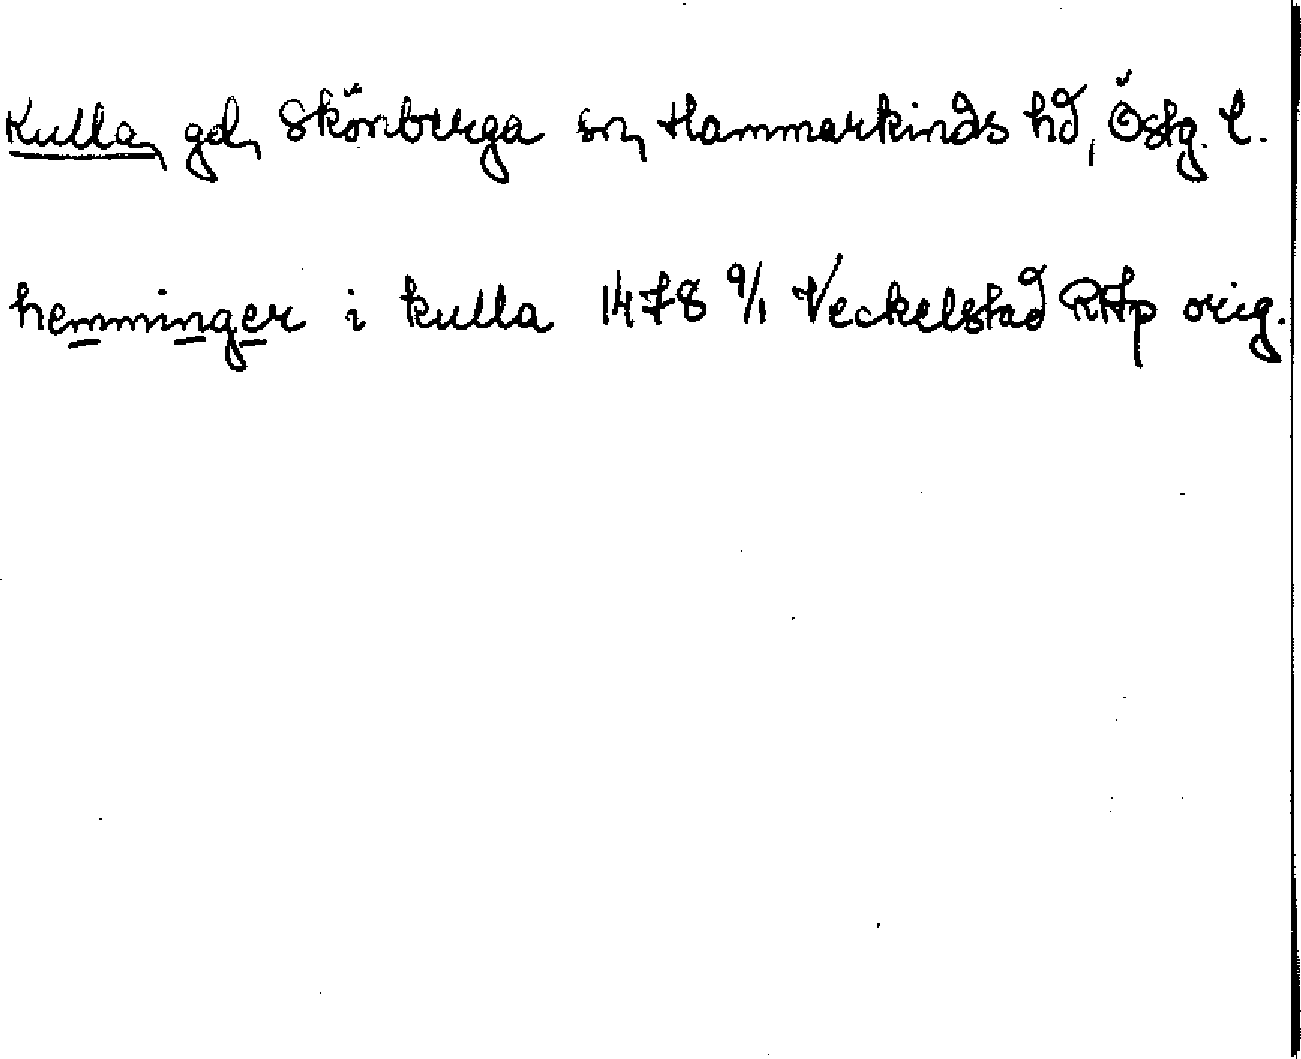 Kulla, gd, Skönberga sn, Hammarkinds hd, Östg. l.
hemminger i kulla 1478 9/1 Veckelstad RAp orig.